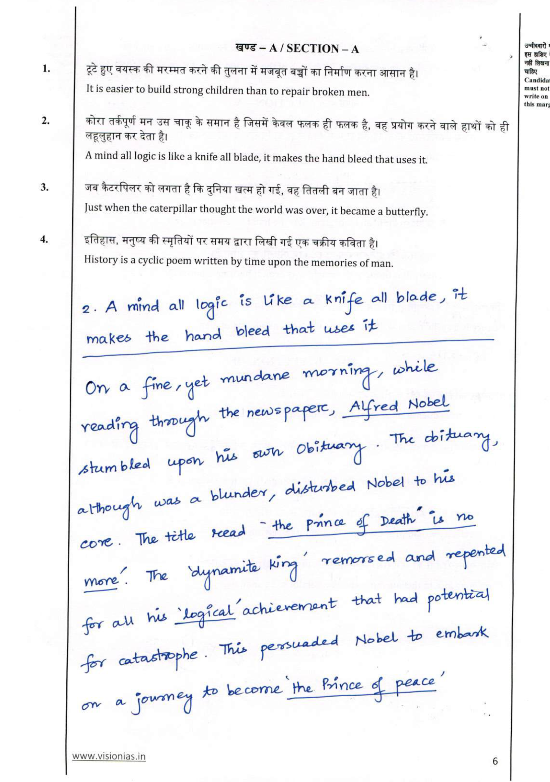 खण्ड – A / SECTION – A
1. टूटे हुए वयस्क की मरम्मत करने की तुलना में मजबूत बच्चों का निर्माण करना आसान है।
It is easier to build strong children than to repair broken men.
2. कोरा तर्कपूर्ण मन उस चाकू के समान है जिसमें केवल फलक ही फलक है, वह प्रयोग करने वाले हाथों को ही
लहूलुहान कर देता है।
A mind all logic is like a knife all blade, it makes the hand bleed that uses it.
3. जब कैटरपिलर को लगता है कि दुनिया खत्म हो गई, वह तितली बन जाता है।
Just when the caterpillar thought the world was over, it became a butterfly.
4. इतिहास, मनुष्य की स्मृतियों पर समय द्वारा लिखी गई एक चक्रीय कविता है।
History is a cyclic poem written by time upon the memories of man.
उम्मीदवारों
इस हाशिए
नहीं लिखना
चाहिए
Candida
must not
write on
this marg
2. A mind all logic is like a knife all blade, it
makes the hand bleed that uses it
On a fine, yet mundane morning, while
reading through the newspaper, Alfred Nobel
stumbled upon his own Obituary. The obituary,
although was a blunder, disturbed Nobel to his
core. The title read "the prince of Death" is no
more'. The 'dynamite king' remorsed and repented
for all his 'logical' achievement that had potential
for catastrophe. This persuaded Nobel to embark
on a journey to become 'the Prince of peace'
www.visionias.in
6